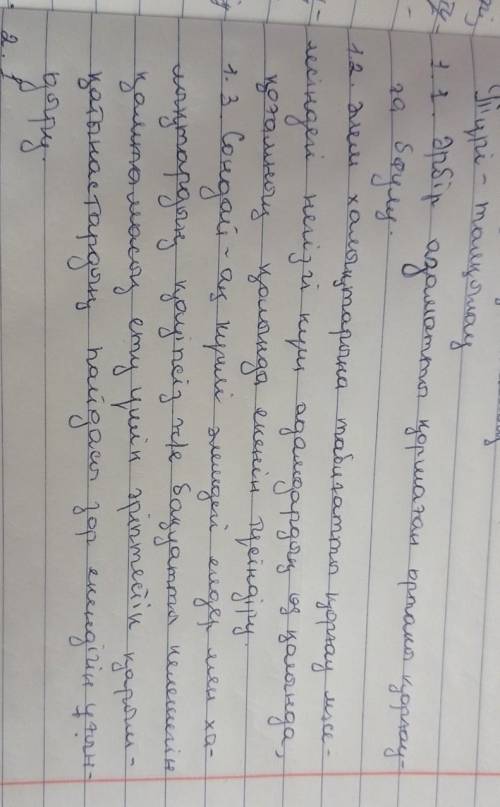 Түрі - талқылау
1.1. Әрбір азаматты қоршаған ортаны қорғау-
ға баулу.
1.2. Әлем халықтарына табиғатты қорғау мәсе-
лесіндегі негізгі күш адамдардың өз қолында,
қоғамның қолында екенін түсіндіру.
1.3. Сондай-ақ күллі әлемдегі елдер мен ха-
лықтардың қауіпсіз және бақуатты келешегін
қамтамасыз ету үшін әріптестік қарым-
қатынастардың пайдасы зор екендігін ұғын-
дыру.
2.